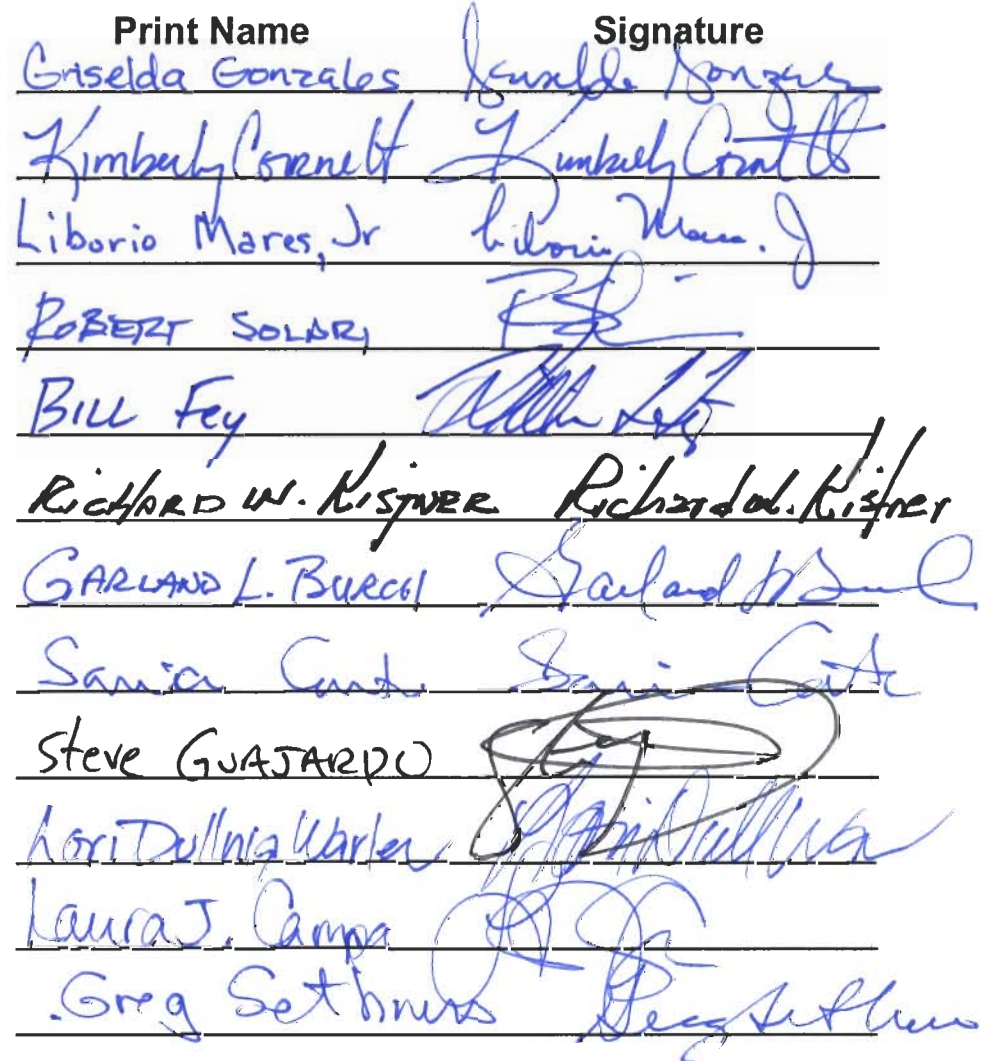 Print Name Signature
Griselda Gonzales Griselda Gonzales
Kimberly Cornett Kimberly Cornett
Liborio Mares, Jr Liborio Mares. J
ROBERT SOLARI
BILL Fey
RICHARD W. KISTNER Richard W. Kistner
GARLAND L. BURCH Garland
Steve GUAJARDO
Lori Dullnig Warlen Lori
Laura J. Campa
Greg Sethness Greg Sethness